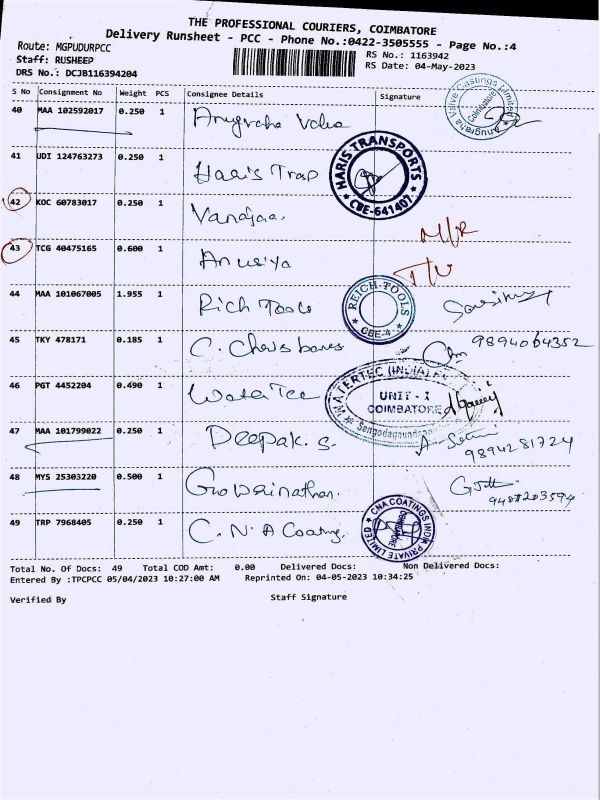 THE PROFESSIONAL COURIERS, COIMBATORE
Delivery Runsheet - PCC - Phone No.:0422-3505555 - Page No.:4
Route: MGPUDURPCC
Staff: RUSHEEP
DRS No.: DCJB116394204
RS No.: 1163942
RS Date: 04-May-2023
S No Consignment No Weight PCS Consignee Details Signature
40 MAA 102592017 0.250 1 Anugraha Valve
Anugraha Valve Castings Limited Coimbatore
41 UDI 124763273 0.250 1 Haris Trap
HARIS TRANSPORTS CBE-641407
42 KOC 60783017 0.250 1 N/R
43 TCG 40475165 0.600 1 Anusiya
44 MAA 101067005 1.955 1 Rich Tools
REICH-TOOLS CBE-4
45 TKY 478171 0.185 1 C. 9894064352
46 PGT 4452204 0.490 1 WaterTec
WATERTEC (INDIA) UNIT - I COIMBATORE
47 MAA 101799022 0.250 1 Deepak. S. 9894281724
48 MYS 25303220 0.500 1 Gowrinathan.
49 TRP 7968405 0.250 1 C. N. A Coating.
CNA COATINGS INDIA PRIVATE LIMITED
Total No. Of Docs: 49 Total COD Amt: 0.00 Delivered Docs: Non Delivered Docs:
Entered By :TPCPCC 05/04/2023 10:27:00 AM Reprinted On: 04-05-2023 10:34:25
Verified By Staff Signature